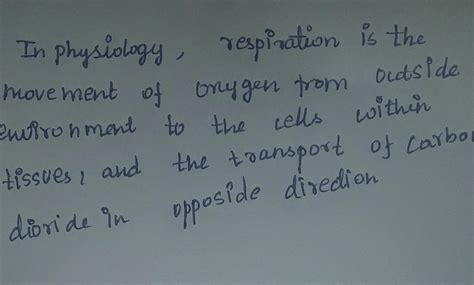 In physiology, respiration is the
movement of oxygen from outside
environment to the cells within
tissues, and the transport of carbo
dioxide in opposide diredion